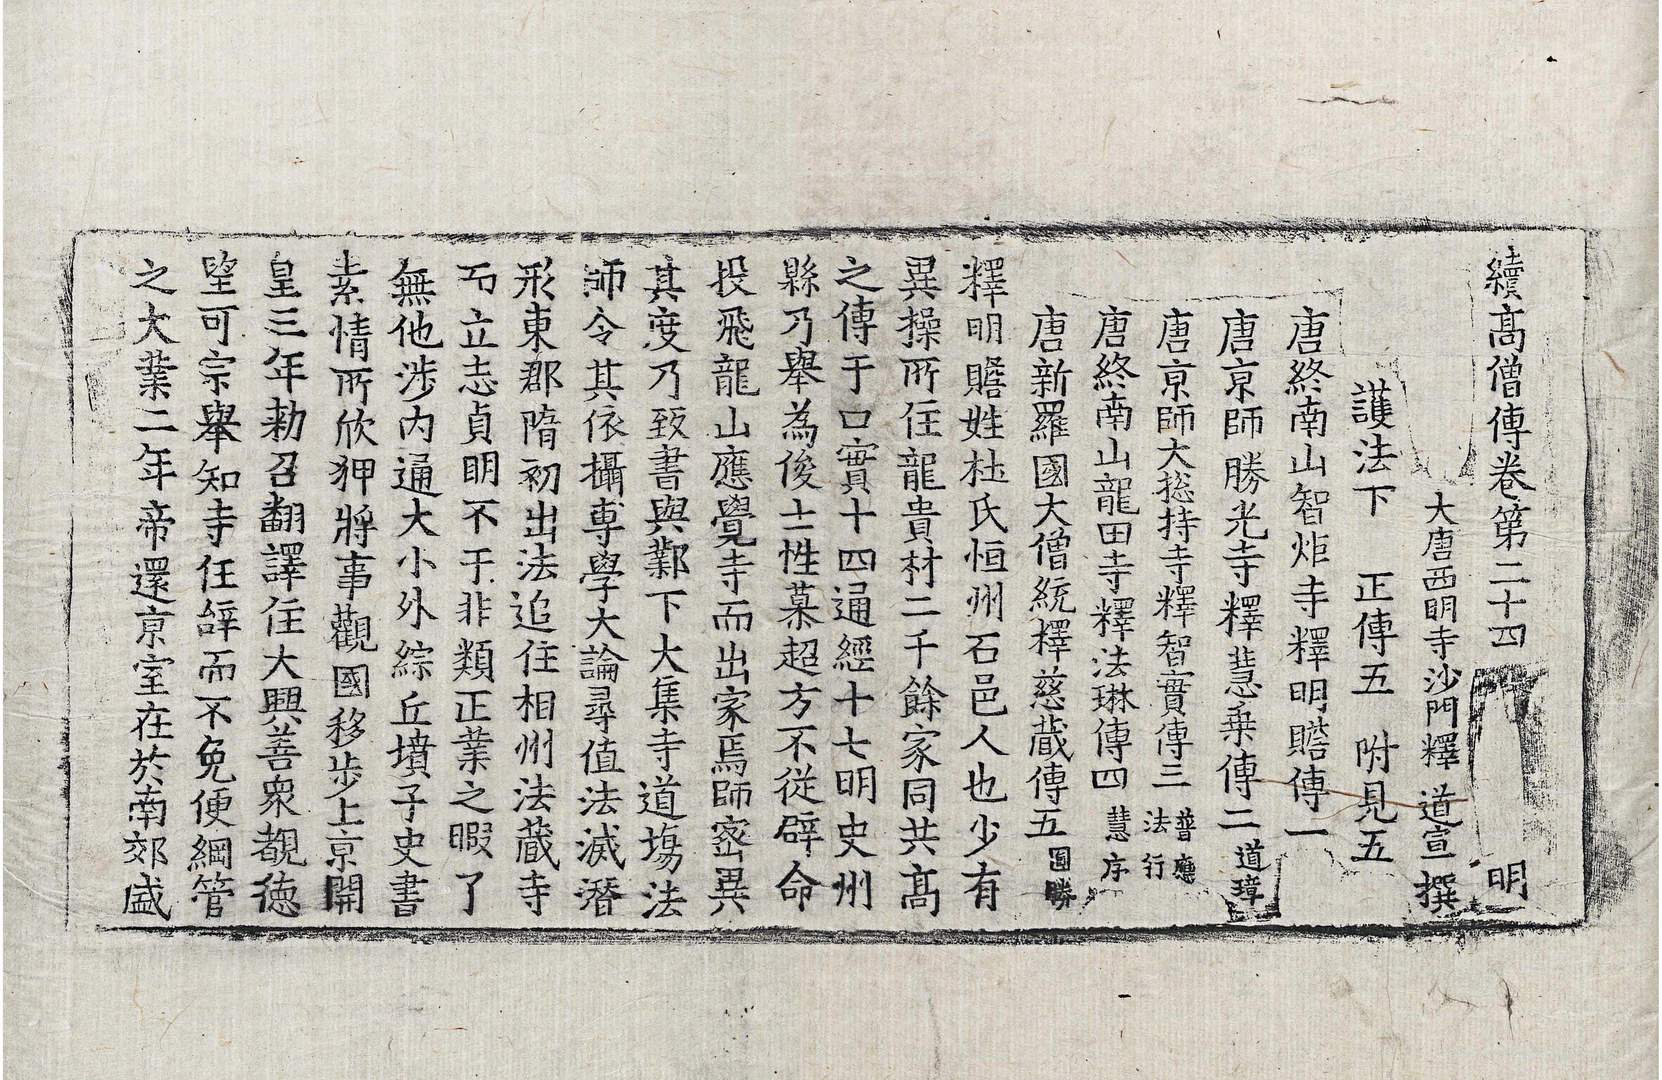 續高僧傳卷第二十四　明
大唐西明寺沙門釋道宣撰
護法下　正傳五　附見五
唐終南山智炬寺釋明贍傳一
唐京師勝光寺釋慧乗傳二 道璋
唐京師大揔持寺釋智實傳三 普應 法行
唐終南山龍田寺釋法琳傳四 慧序
唐新羅國大僧統釋慈藏傳五 圓勝
釋明贍姓杜氏恒州石邑人也少有
異操所住龍貴村二千餘家同共髙
之傳于口實十四通經十七明史州
縣乃舉為俊士性慕超方不從辟命
投飛龍山應覺寺而出家焉師密異
其度乃致書與鄴下大集寺道場法
師令其依攝專學大論尋值法滅潛
形東郡隋初出法追住相州法藏寺
石立志貞明不干非類正業之暇了
無他涉内通大小外綜丘墳子史書
素情所欣狎將事觀國移步上京開
皇三年勑召翻譯住大興善衆覩德
望可宗舉知寺任辝而不免便綱管
之大業二年帝還京室在於南郊盛